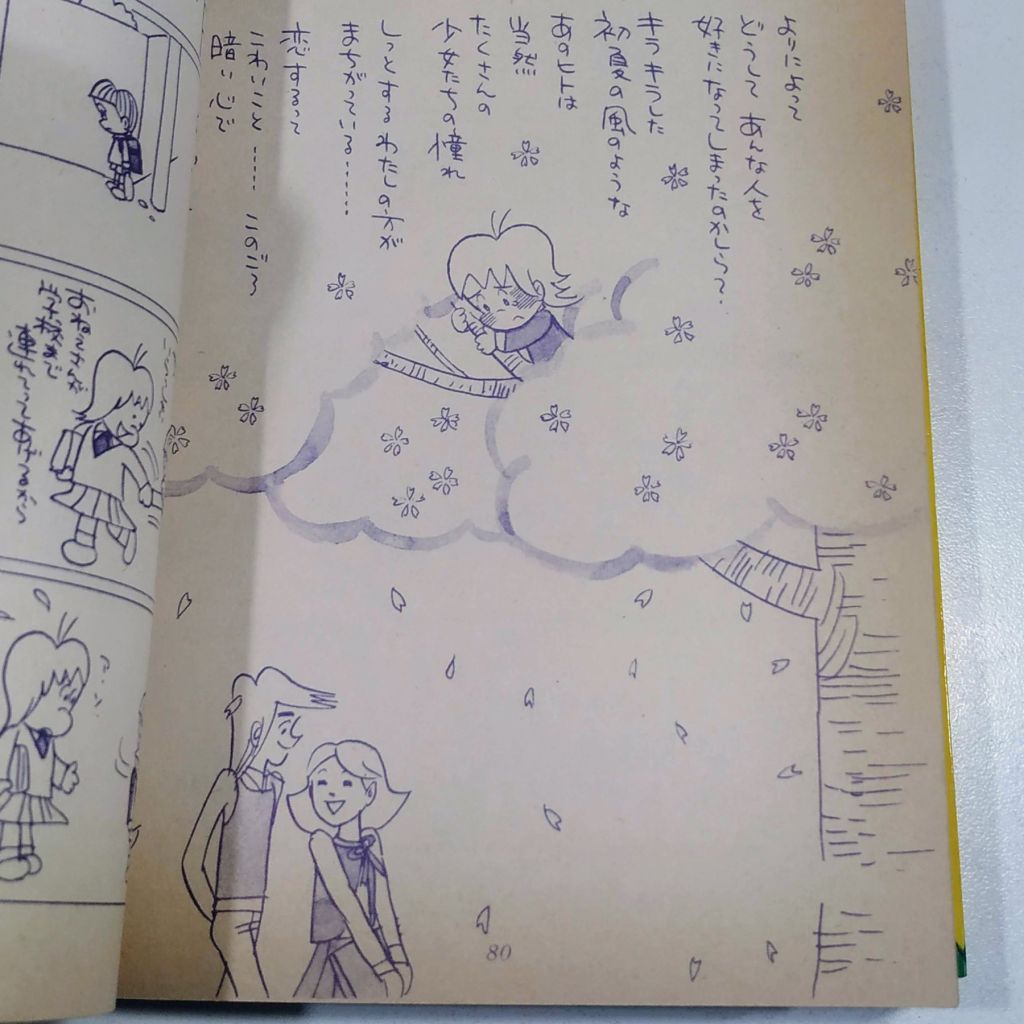 よりによって
どうして あんな人を
好きになってしまったのかしら?
キラキラした
初夏の風のような
あのヒトは
当然
たくさんの
少女たちの憧れ
しっとするわたしの方が
まちがっている……
恋するって
こわいこと…… このごろ
暗い心で
80